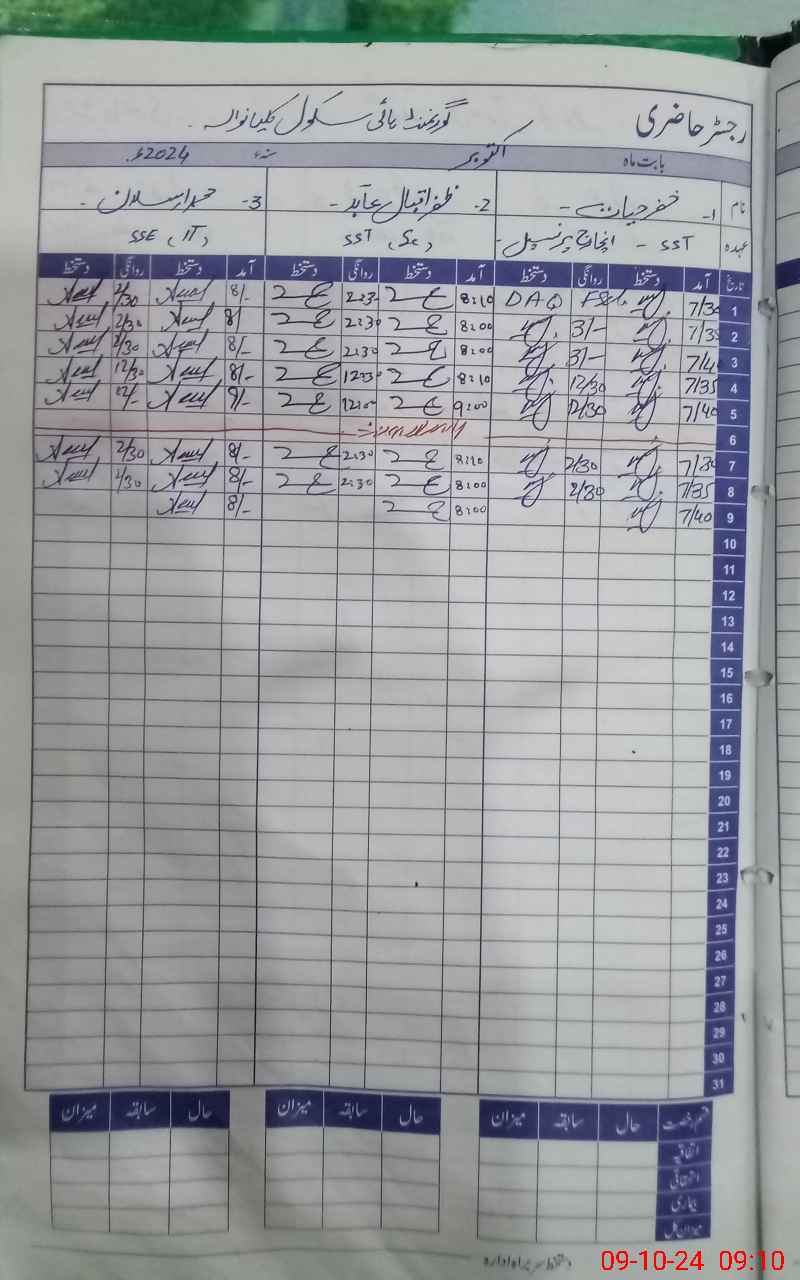 رجسٹر حاضری گورنمنٹ ہائی سکول کلیانوالہ
بابت ماہ اکتوبر سنہ 2024ء
نام 1- خضر حیات - 2- ظفر اقبال عابد - 3-
عہدہ SST - انچارج پرنسپل - SST (Sc) SSE (IT)
تاریخ آمد دستخط روانگی دستخط آمد دستخط روانگی دستخط آمد دستخط روانگی دستخط
1 7/30 DAO 8:10 2:30 8/- 2/30
2 7/35 3/- 8:00 2:30 8/ 2/30
3 7/40 3/- 8:00 2:30 8/- 2/30
4 7/35 12/30 8:10 12:30 8/- 12/30
5 7/40 12/30 9:00 12:00 9/- 12/-
6
7 7/30 2/30 8:10 2:30 8/- 2/30
8 7/35 2/30 8:00 2:30 8/- 2/30
9 7/40 8:00 8/-
10
11
12
13
14
15
16
17
18
19
20
21
22
23
24
25
26
27
28
29
30
31
قسم رخصت حال سابقہ میزان حال سابقہ میزان حال سابقہ میزان
اتفاقیہ
استحقاقی
بیماری
میزان کل
دستخط سربراہ ادارہ
09-10-24 09:10